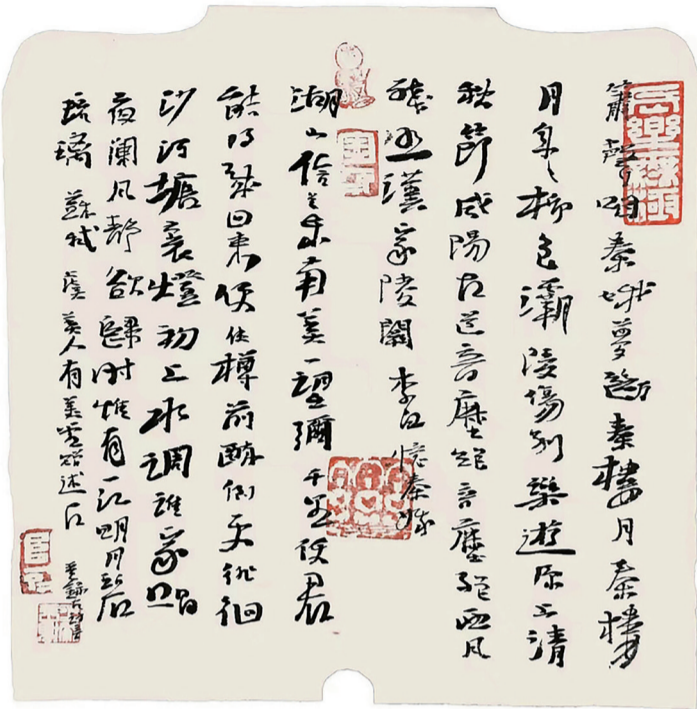 長樂無極
簫聲咽秦娥夢斷秦樓月秦樓
月年々柳色灞陵傷別樂遊原上清
秋節咸陽古道音塵絕音塵絕西風
殘照漢家陵闕 李白憶秦娥
湖山信是東南美一望彌千里使君
能得幾回來便使樽前醉倒更徘徊
沙河塘裏燈初上水調誰家唱
夜闌風靜欲歸時惟有一江明月碧
琉璃 蘇軾 虞美人有美堂贈述古